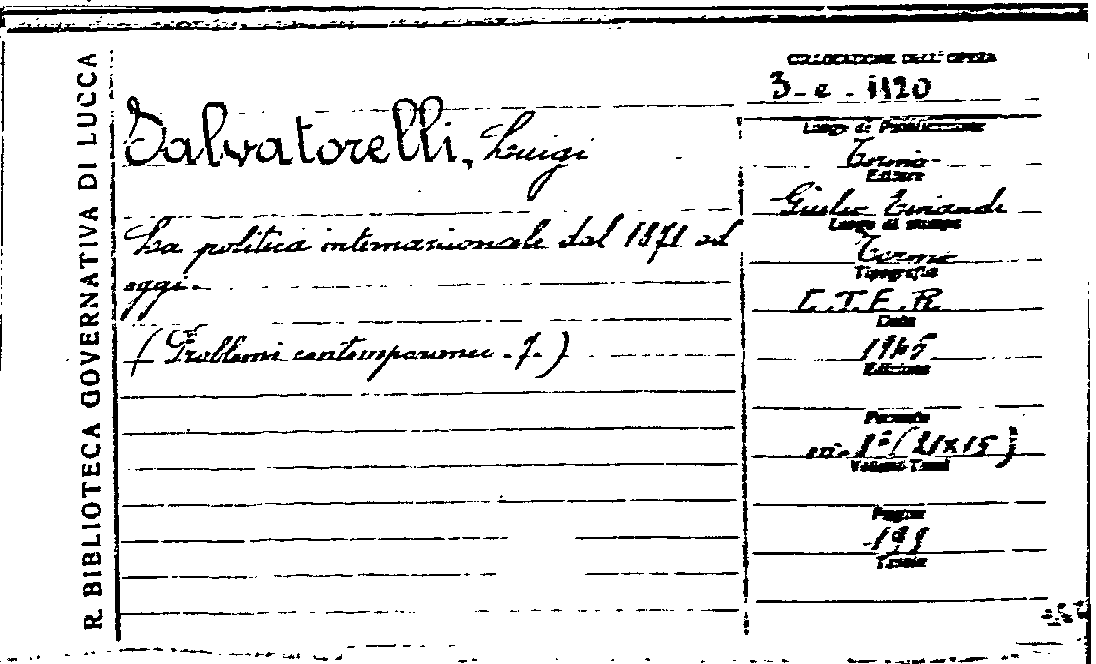 R. BIBLIOTECA GOVERNATIVA DI LUCCA
Salvatorelli, Luigi
La politica internazionale dal 1871 ad
oggi.
(Problemi contemporanei. 7.)
COLLOCAZIONE DELL'OPERA
3-e-1120
Luogo di Pubblicazione
Torino
Editore
Giulio Einaudi
Luogo di stampa
Torino
Tipografia
C.T.E.R
Data
1945
Edizione
Formato
in-8° (21x15)
Volumi-Tomi
Pagine
199
Tavole